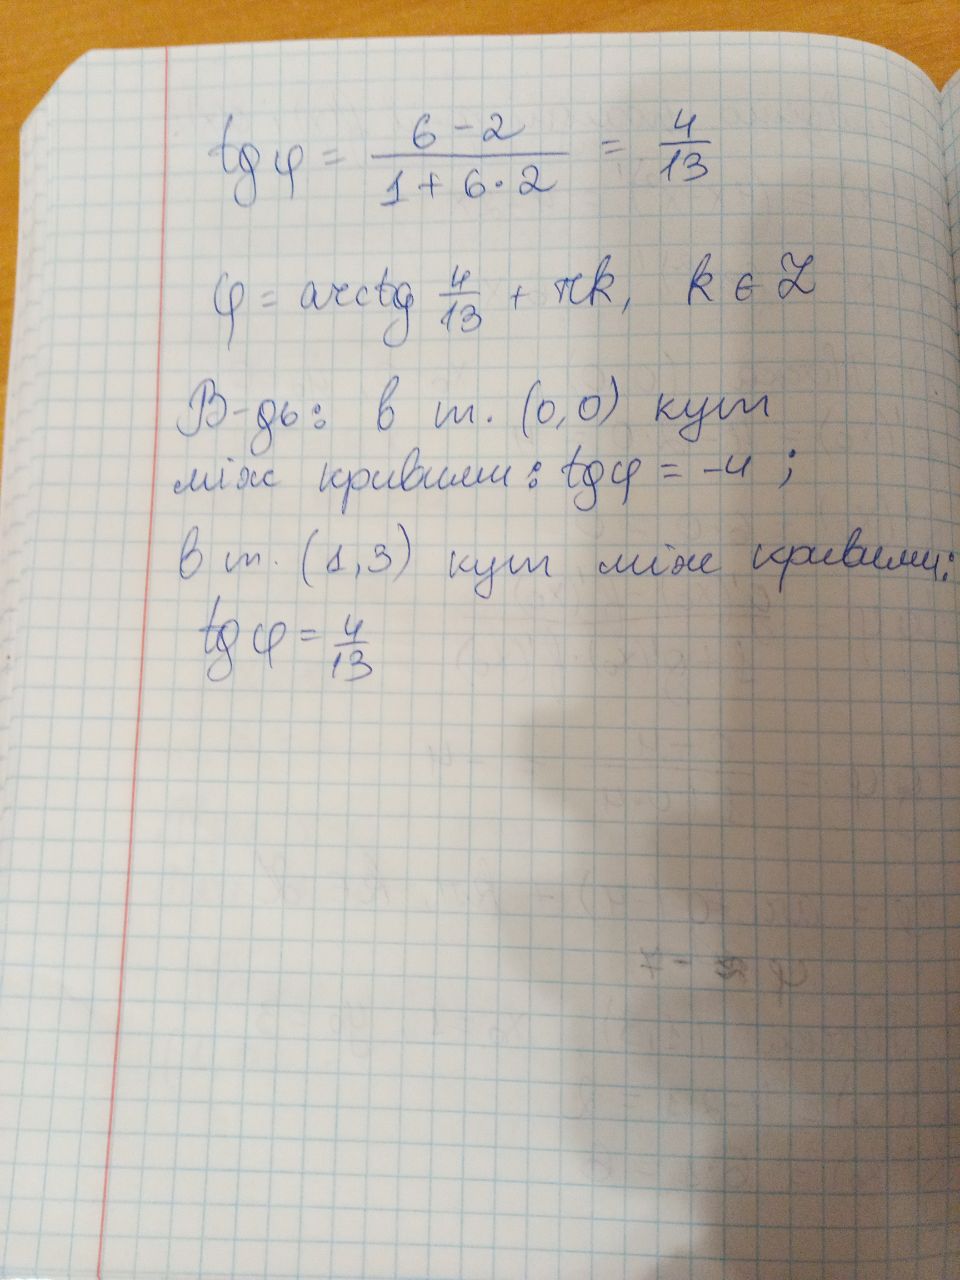 tg φ = (6 - 2)/(1 + 6·2) = 4/13
φ = arctg 4/13 + πk, k ∈ Z
В-дь: в т. (0,0) кут
між кривими: tg φ = -4 ;
в т. (1,3) кут між кривими:
tg φ = 4/13